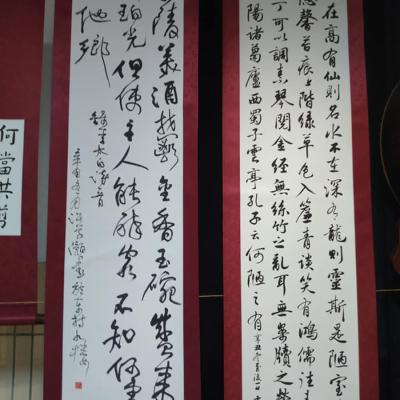 在高有仙則名水不在深有龍則靈斯是陋室
德馨苔痕上階綠草色入簾青談笑有鴻儒往
丁可以調素琴閱金經無絲竹之亂耳無案牘之勞
陽諸葛廬西蜀子雲亭孔子云何陋之有
陵美酒鬱金香玉碗盛來
珀光但使主人能醉客不知何處
他鄉
李太白詩一首
何當共剪